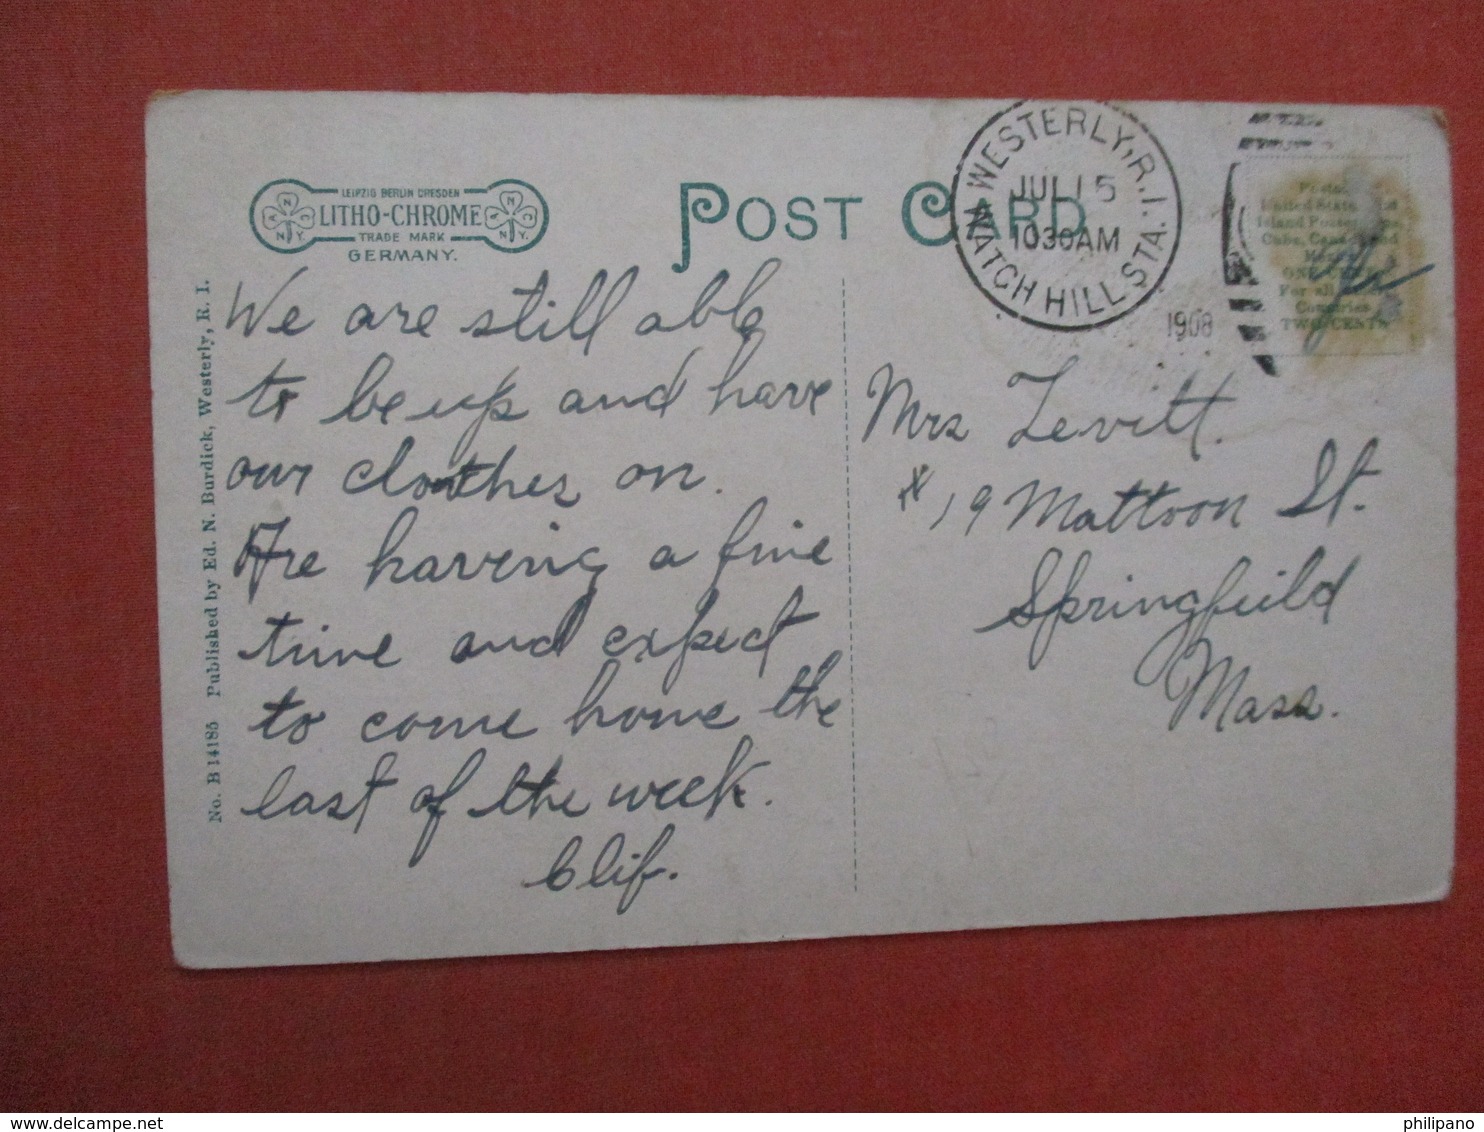 LEIPZIG BERLIN DRESDEN
LITHO-CHROME
TRADE MARK
GERMANY.
N.Y.
N.Y.
POST CARD
WESTERLY, R.I.
JUL 15
1030AM
WATCH HILL STA.
1908
United State
Island
Cuba,
ONE CENT
For all
Countries
TWO CENTS
No. B 14185 Published by Ed. N. Burdick, Westerly, R. I.
We are still able
to be up and have
our clothes on.
Are having a fine
time and expect
to come home the
last of the week.
Clif.
Mrs Levitt.
# 19 Mattoon St.
Springfeild
Mass.
philipano